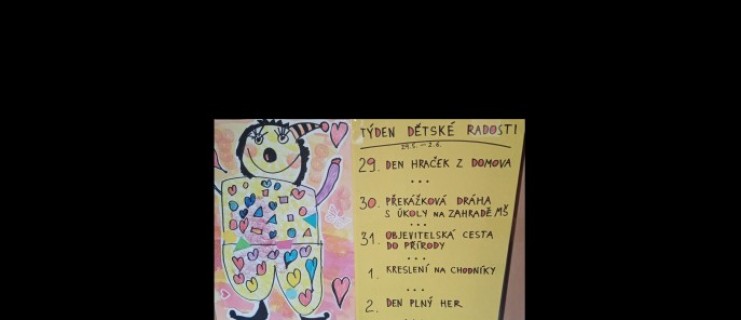 TÝDEN DĚTSKÉ RADOSTI
29.5. – 2.6.
29. DEN HRAČEK Z DOMOVA
...
30. PŘEKÁŽKOVÁ DRÁHA
S ÚKOLY NA ZAHRADĚ MŠ
...
31. OBJEVITELSKÁ CESTA
DO PŘÍRODY
...
1. KRESLENÍ NA CHODNÍKY
...
2. DEN PLNÝ HER
...